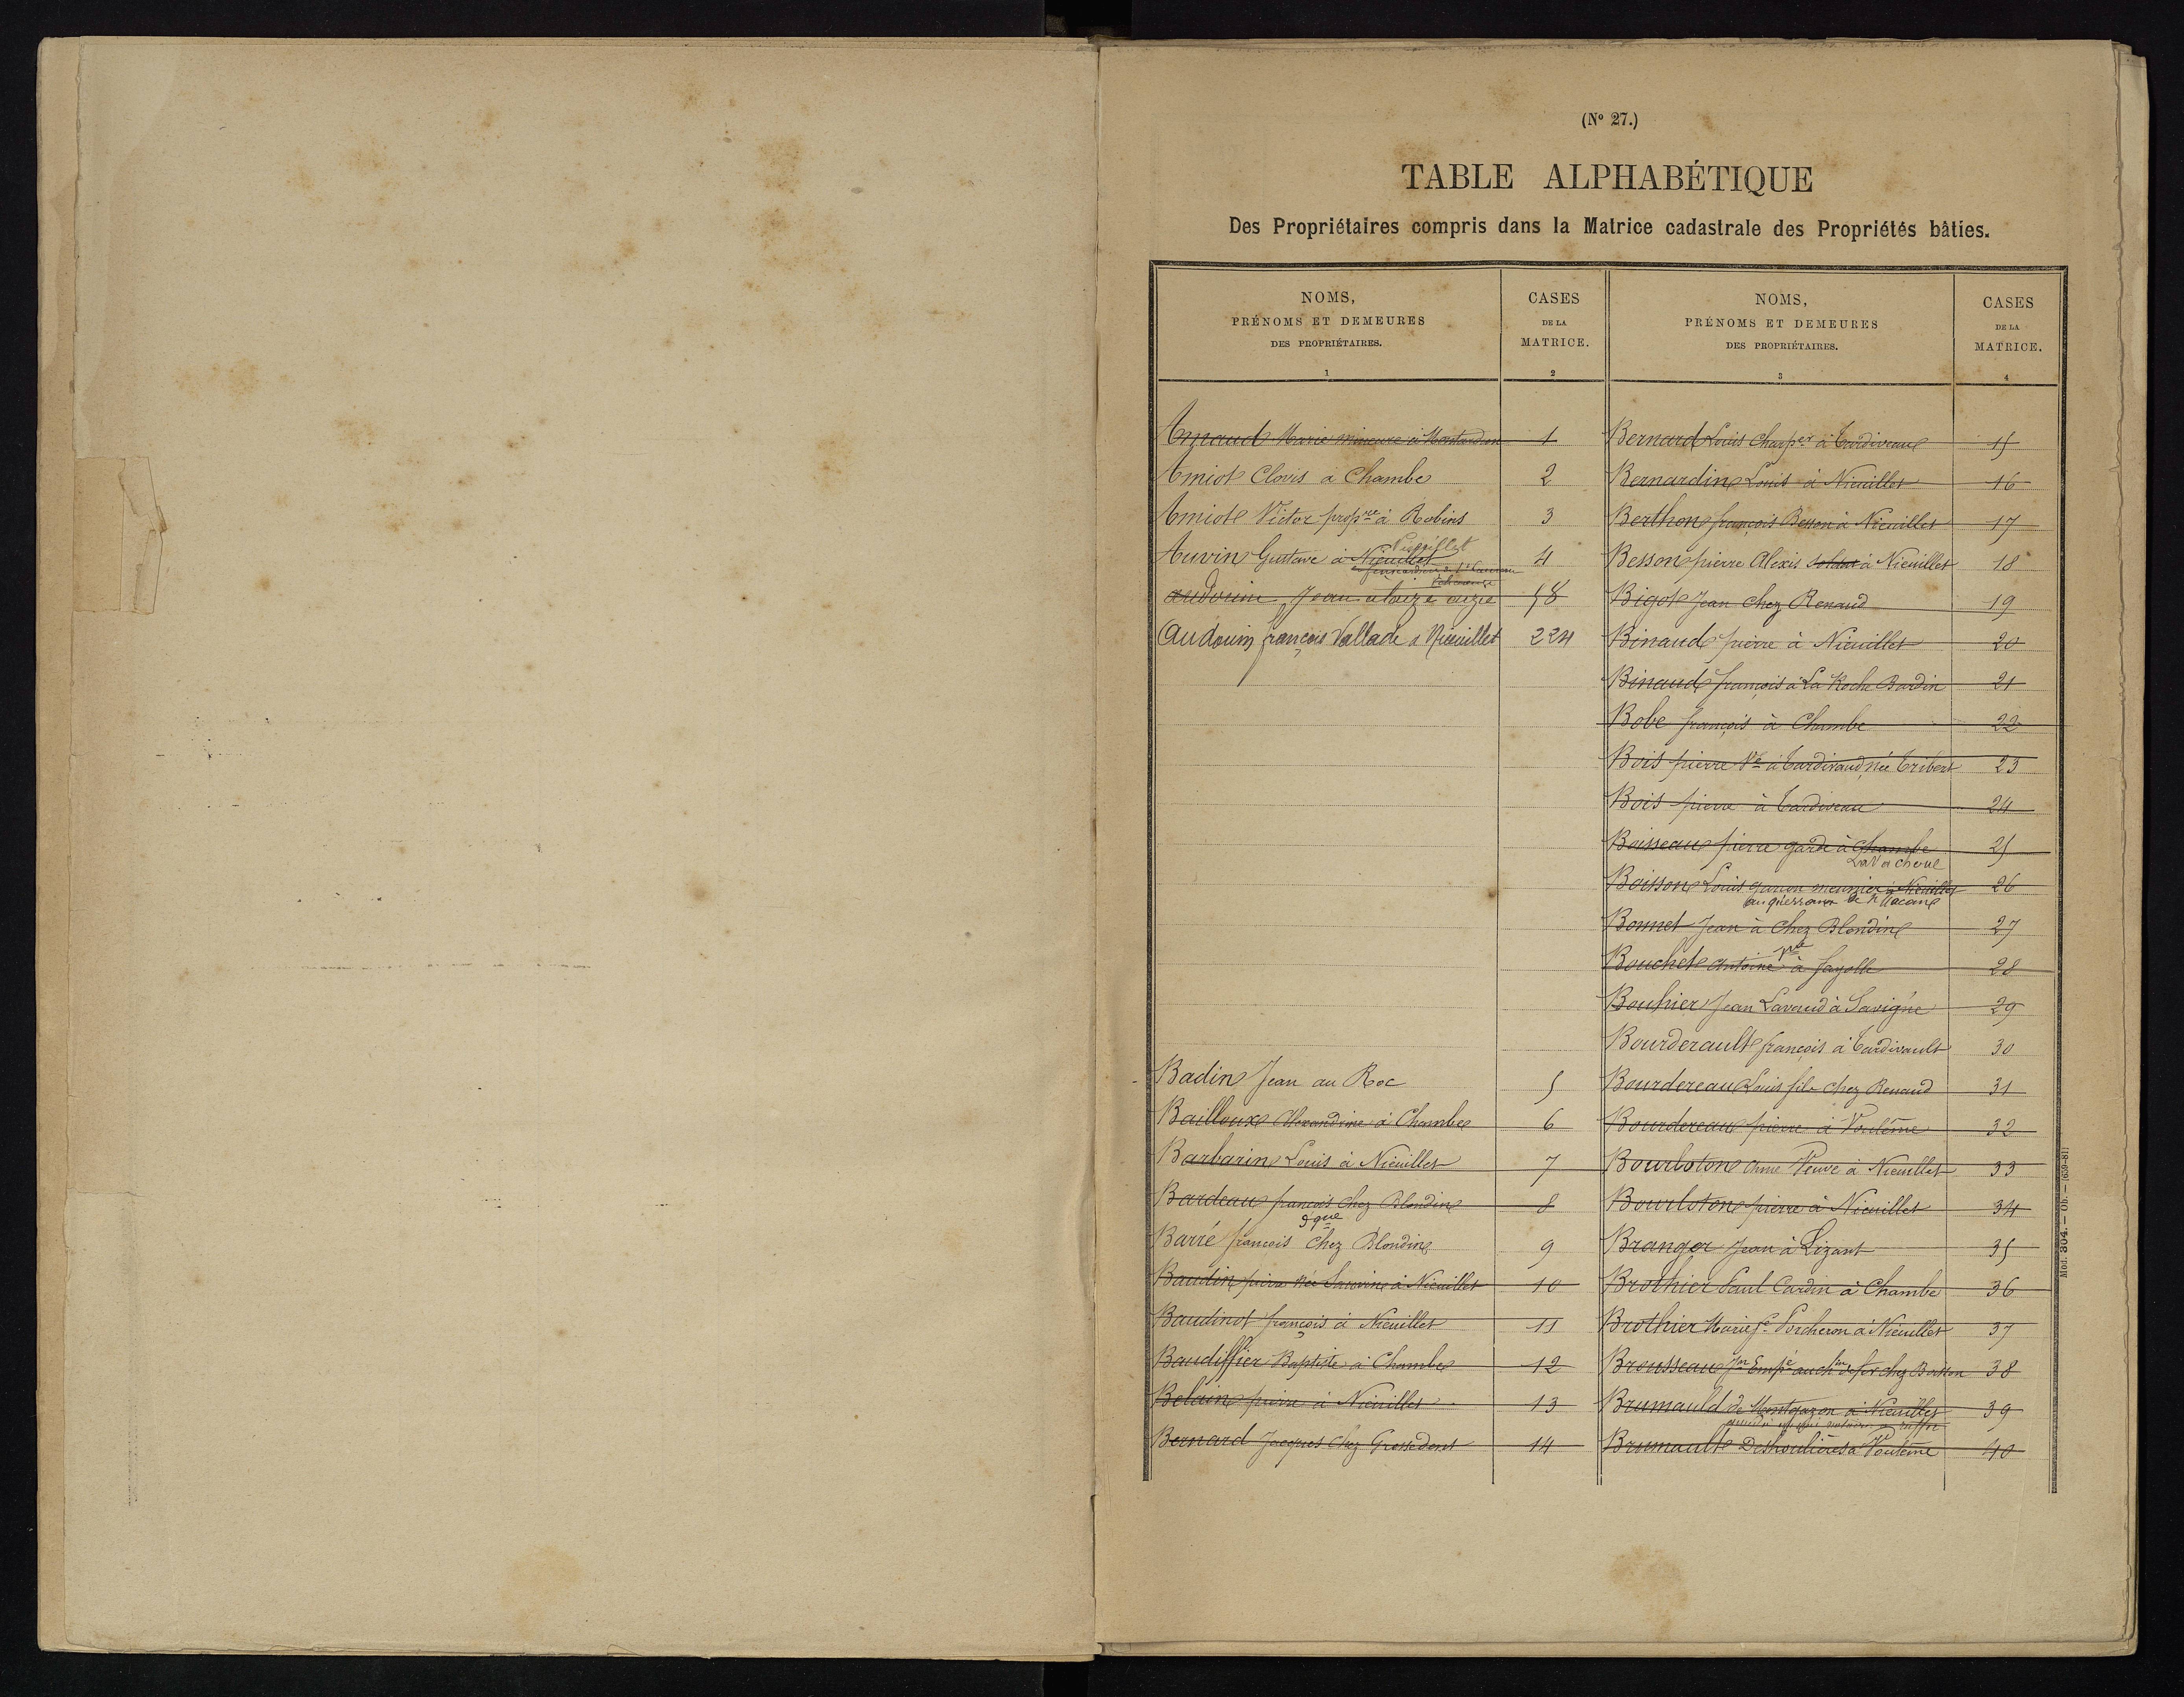 (Nº 27.)
TABLE ALPHABÉTIQUE
Des Propriétaires compris dans la Matrice cadastrale des Propriétés bâties.
NOMS,
PRÉNOMS ET DEMEURES
DES PROPRIÉTAIRES.
1
CASES
DE LA
MATRICE.
2
NOMS,
PRÉNOMS ET DEMEURES
DES PROPRIÉTAIRES.
3
CASES
DE LA
MATRICE.
4
Arnaud Marie mineure à Montardon 1
Amiot Clovis à Chambe 2
Amiot Victor propre à Robins 3
Auvin Gustave à Nieuillet 4
audouin Jean 58
Audouin françois Vallade à Nieuillet 224
Badin Jean au Roc 5
Bailloux Alexandrine à Chambe 6
Barbarin Louis à Nieuillet 7
Bardeau françois chez Blondin 8
Barré françois chez Blondin 9
Baudin pierre née à Nieuillet 10
Baudinot françois à Nieuillet 11
Baudiffier Baptiste à Chambe 12
Belain pierre à Nieuillet 13
Bernard Jacques chez Grossedent 14
Bernard Louis Charper à Tardiveau 15
Bernardin Louis à Nieuillet 16
Berthon françois Besson à Nieuillet 17
Besson pierre Alexis soldat à Nieuillet 18
Bigot Jean chez Renaud 19
Binaud pierre à Nieuillet 20
Binaud françois à La Roche Bardin 21
Bobe françois à Chambe 22
Bois pierre Ve à Tardivaud née Tribert 23
Bois pierre à Tardiveau 24
Boisseau pierre garde à Chambe 25
Boisson Louis garçon meunier à Nieuillet 26
Bonnet Jean à Chez Blondin 27
Bouchet Antoine à fayolle 28
Bouhier Jean Lavaud à Savigné 29
Bourderault françois à Tardivault 30
Bourdereau Louis fils chez Renaud 31
Bourdereau pierre à Voulême 32
Bourloton Anne Veuve à Nieuillet 33
Bourloton pierre à Nieuillet 34
Branger Jean à Lizant 35
Brothier Paul Cardin à Chambe 36
Brothier Marie fe Porcheron à Nieuillet 37
Brousseau Jn Empé au chin de fer chez Bouton 38
Brumauld de Montgazon à Nieuillet 39
Brumault Deshoulières à Voulême 40
Mod. 304. — Ob. — (639-81)